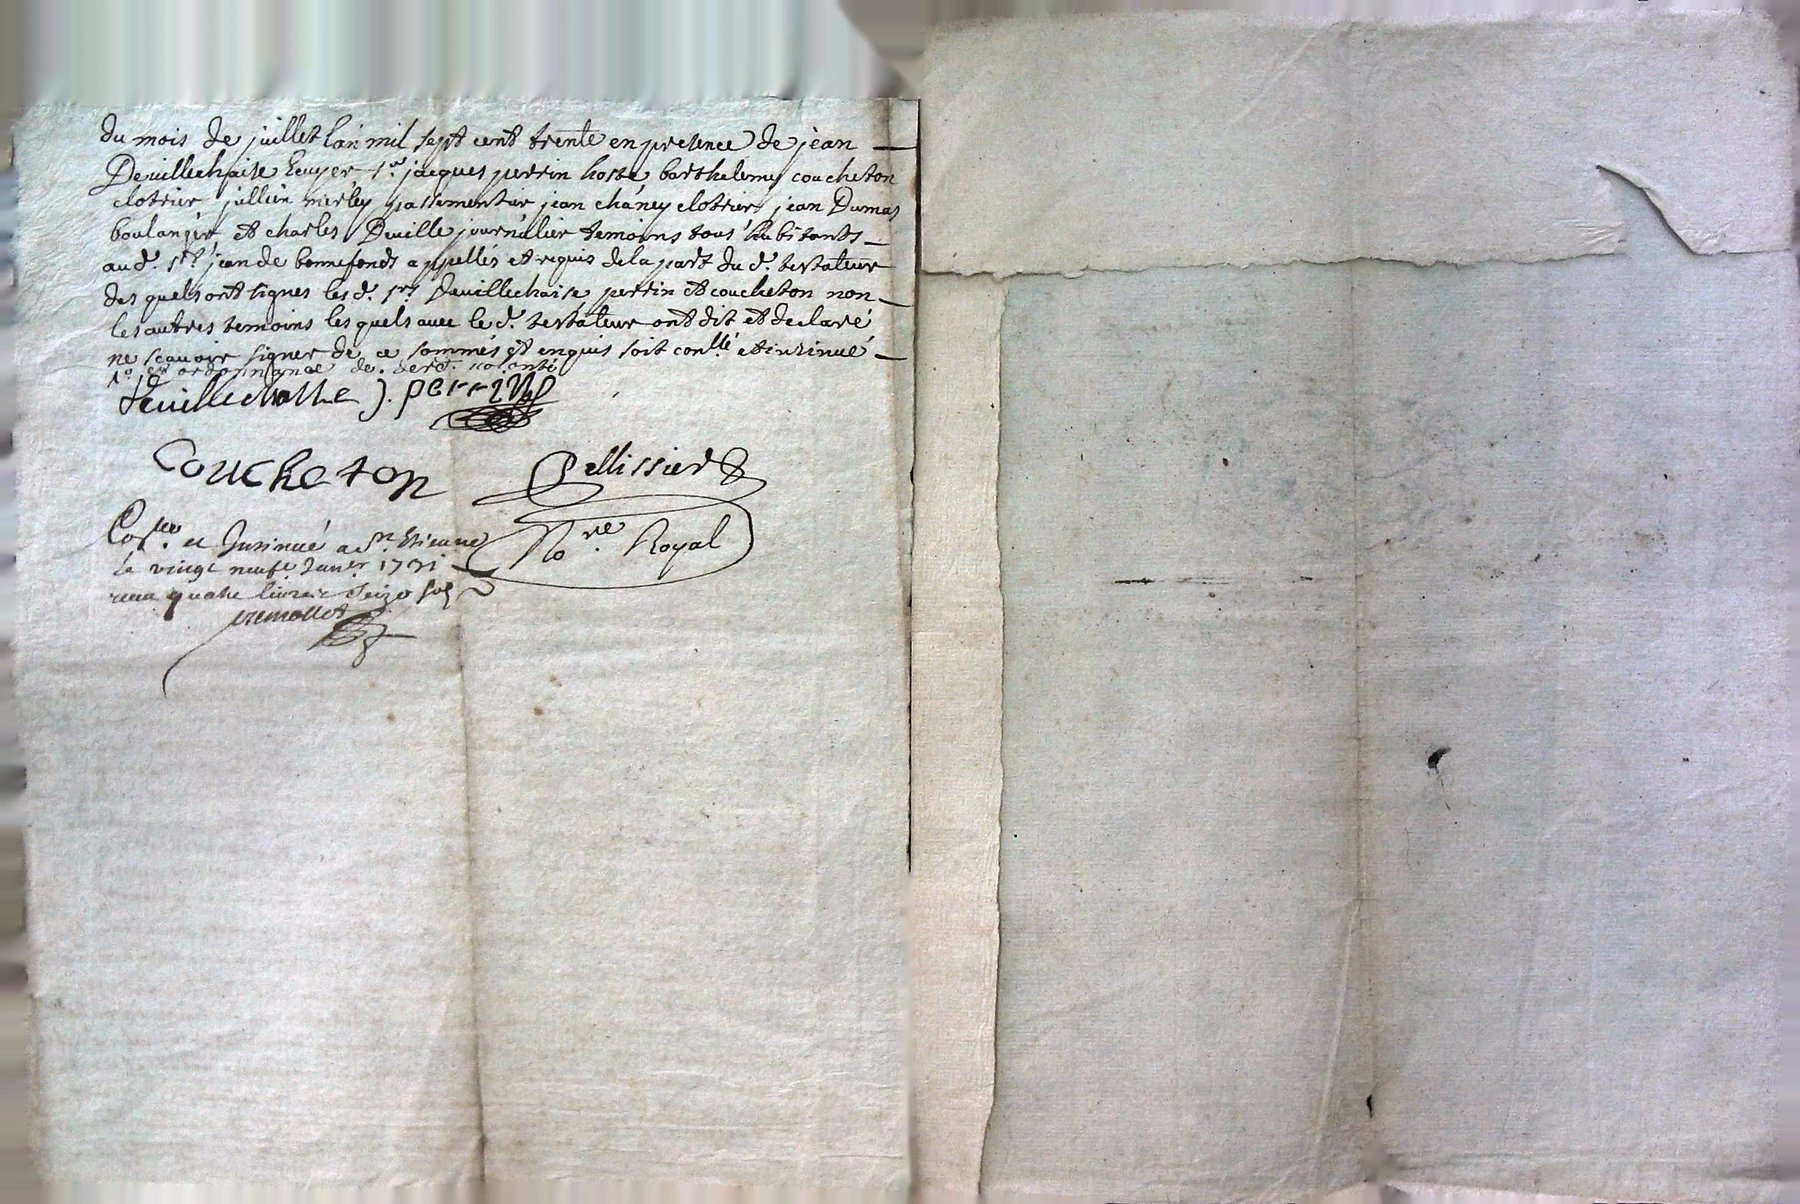 du mois de juillet lan mil sept cent trente en presence de jean
Devillechaise Ecuyer sr. jacques perrin hoste barthelemy coucheton
clotrier jullien merley passementier jean chaney clotrier jean Dumas
boulangér et charles Deville journalier temoins tous habitants
aud. st. jean de bonnefonds appellés et requis de la part du d. testateur
des quels ont signes les d. srs Devillechaise perrin et coucheton non
les autres temoins les quels avec le d. testateur ont dit et declaré
ne scavoir signer de ce sommés et enquis soit conllé et insinué
et ordonnance de volonté
Devillechaise J. perrin
Coucheton Pellissier
No.re Royal
et Insinué a St. Etienne
le vingt neufe Janer 1731
receu quatre livres seize sols